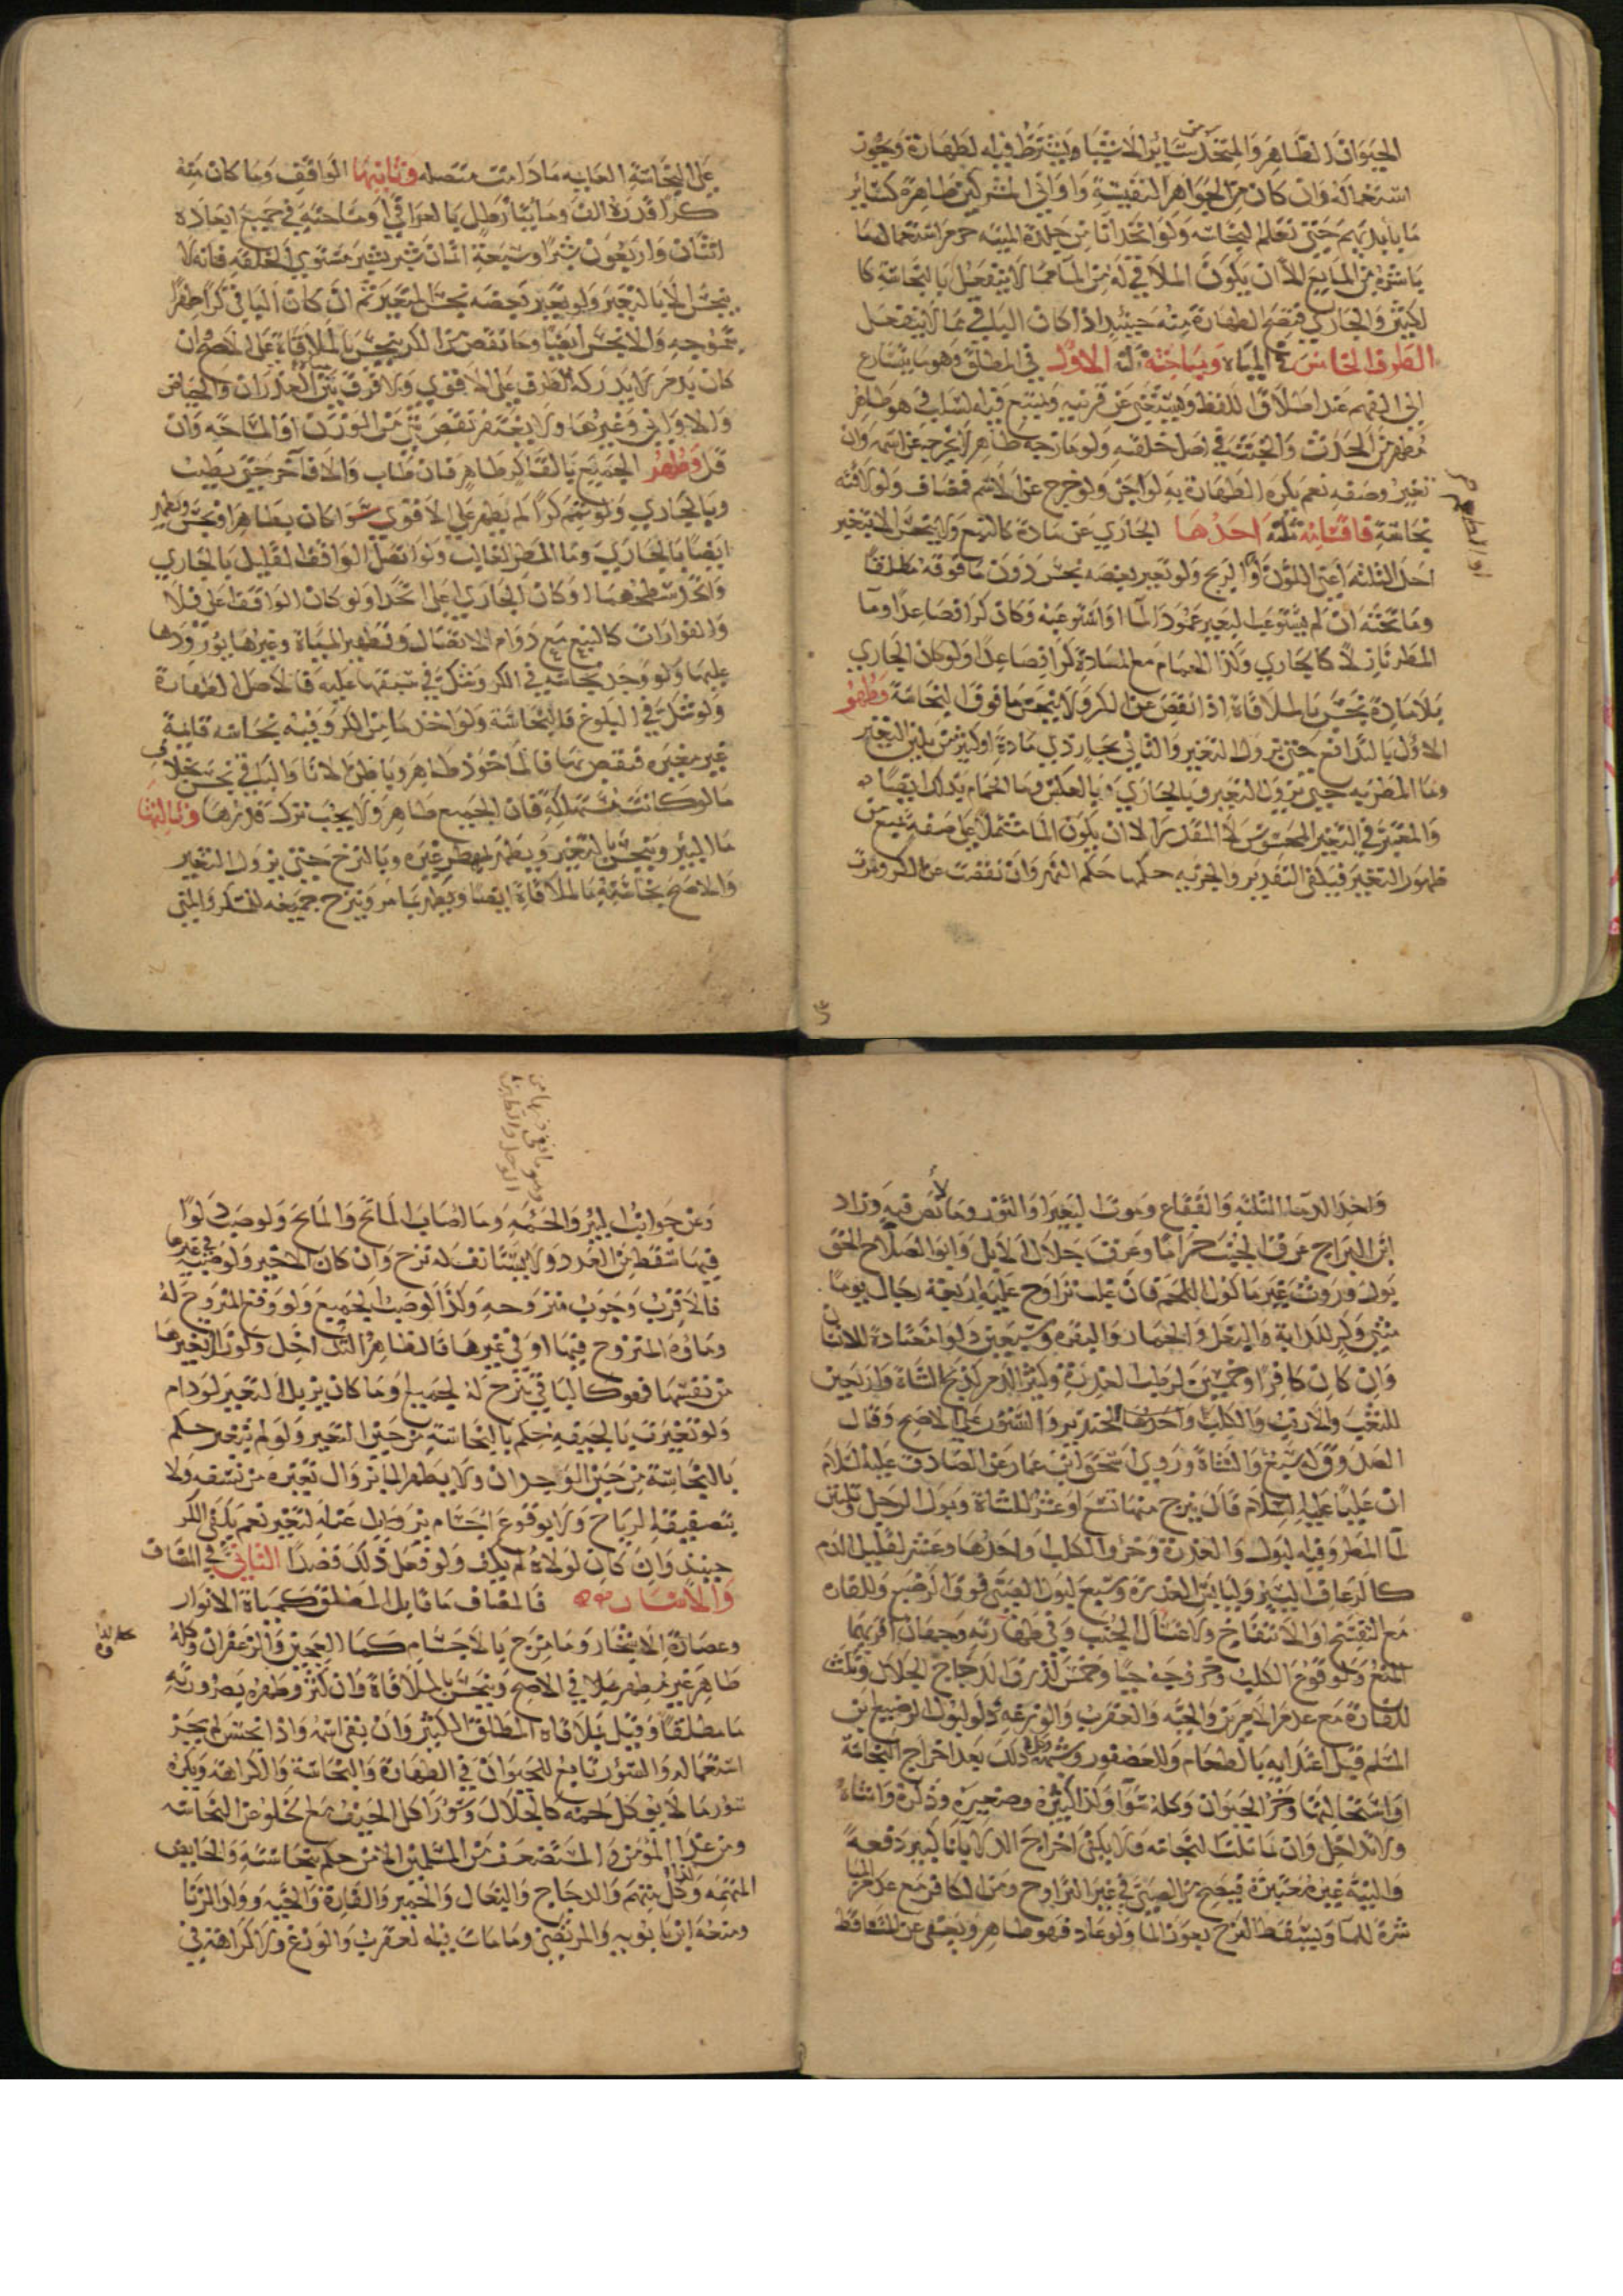 الحيوان الطاهر والمتخذ من سائر الاشيا ويشترط فيه الطهارة ويجوز
استعماله وان كان من الجواهر النفيسة واواني المشركين طاهرة كسائر
ما بايديهم حتى تعلم النجاسة ولو اتخذ انا من جلد الميتة حرم استعمالها
باشره من المايع الا ان يكون الملاقي له من الما مما لا ينفعل بالنجاسة كا
لكثير والجاري فتصح الطهارة منه حينئذ اذا كان الباقي مما لا ينفعل
الطرف الخامس في المياه ومباحثه ثلثة الاول في المطلق وهو ما يتسارع
الى الفهم عند اطلاق اللفظ ويستغني عن قرينة ويمتنع فيه السلب هو طاهر
مطهر من الحدث والخبث في اصل خلقته ولو مازجه طاهر لا يخرجه عن اسمه وان
تغير وصفه نعم يكره الطهارة به لو اجن ولو خرج عن الاسم فمضاف ولو لاقته
نجاسة فاقسامه ثلثة احدها الجاري عن مادة كالنبع ولا ينجس الا بتغير
احد الثلثة اعني اللون او الريح ولو تغير بعضه نجس دون ما فوقه مطلقا
وما تحته ان لم يستوعب التغير عمود الما او استوعبه وكان كرا فصاعدا وما
المطر نازلا كالجاري وكذا الحمام مع المادة كرا فصاعدا ولو كان الجاري
بلا مادة نجس بالملاقاة اذا نقص عن الكر ولا ينجس ما فوق النجاسة وطهر
الاول بالتدافع حتى يزول التغير والثاني بجار ذي مادة او كثير
وما المطر به حتى يزول التغير وبالجاري وبالعكس وما الحمام كذلك ايضا
والمعتبر في التغير المحسوس لا المقدر الا ان يكون الما مشتملا على صفة تمنع من
ظهور التغير فيكفي التقدير والجرية حكمها حكم النهر وان نقصت عن الكر ومرت
على النجاسة مادامت متصلة وثانيها الواقف وما كان منه
كرا قدره الف ومايتا رطل بالعراقي او مساحته في جميع ابعاده
اثنان واربعون شبرا وسبعة اثمان شبر بشبر مستوي الخلقة فانه لا
ينجس الا بالتغير ولو تغير بعضه نجس المتغير ثم ان كان الباقي كرا طهر
بتموجه والا نجس ايضا وما نقص من الكر ينجس بالملاقاة على الاصح وان
كان بدم لا يدركه الطرف على الاقوى ولا فرق بين الغدران والحياض
والاواني وغيرها ولا يغتفر نقص شي من الوزن او المساحة وان
قل وطهر الجميع بالقا كر طاهر فان طاب والا فاخر حتى يطيب
وبالجاري ولو تمم كرا لم يطهر على الاقوى سوا كان بطاهر او نجس ويطهر
ايضا بالجاري وما المطر الغالب ولو اتصل الواقف القليل بالجاري
واتحد سطحهما او كان الجاري اعلى اتحدا ولو كان الواقف اعلى فلا
والفوارات كالنبع مع دوام الاتصال وتطهير المياه وغيرها بورودها
عليها ولو وجد نجاسة في الكر وشك في سبقها عليه فالاصل الطهارة
ولو شك في البلوغ فالنجاسة ولو اخذ ما من الكر وفيه نجاسة قايمة
غير مغيره فنقص بها فالماخوذ طاهر وباطن الانا والباقي نجس بخلاف
ما لو كانت مستهلكة فان الجميع طاهر ولا يجب ترك قدرها وثالثها
ما البير وينجس بالتغير ويطهر بمطهر غيره وبالنزح حتى يزول التغير
والاصح نجاسته بالملاقاة ايضا ويطهر بما مر وينزح جميعه للمسكر والمني
واحد الدما الثلثة والفقاع وموت البعير او الثور وما لا نص فيه وزاد
ابن البراج عرق الجنب حراما وعرق جلال الابل وابو الصلاح الحق
بول وروث غير ماكول اللحم فان غلب تراوح عليه اربعة رجال يوما
وكر للدابة والبغل والحمار والبقرة وسبعين دلوا معتادة للانسان
وان كان كافرا وخمسين لرطب العذرة وكثير الدم كذبح الشاة واربعين
للثعلب والارنب والكلب واحدها الخنزير والسنور على الاصح وقال
الصدوق سبع والشاة وروى اسحق ابن عمار عن الصادق عليه السلام
ان عليا عليه السلام قال ينزح منها تسع او عشر للشاة وبول الرجل وثلثين
لما المطر وفيه البول والعذرة وخرؤ الكلب واحدها وعشر لقليل الدم
كالرعاف اليسير وليابس العذرة وسبع لبول الصبي فوق الرضيع وللفارة
مع التفسخ او الانتفاخ ولاغتسال الجنب وفي طهارته وجهان اقربهما
المنع ولوقوع الكلب وخروجه حيا وخمس لذرق الدجاج الجلال وثلث
للفارة مع عدم الامرين والحية والعقرب والوزغة ودلو لبول الرضيع ابن
المسلم قبل اغتذايه بالطعام وللعصفور وشبهه وكل ذلك بعد اخراج النجاسة
او استحالتها وجزء الحيوان وكله سوا وكذا كبيره وصغيره وذكره وانثاه
ولا تداخل وان تماثلت النجاسة ولا يكفي اخراج الدلا بانا كبير دفعة
والنية غير معتبرة فيصح من الصبي في غير التراوح ومن الكافر مع عدم
للما ويسقط النزح بغور الما ولو عاد فهو طاهر ويعفى عن المتساقط
وعن جوانب البير والحمئة وما اصاب الماتح والمايح ولو صب دلوا
فيها سقط من العدد ولا يستانف له نزح وان كان الاخير ولو صب في غيرها
فالاقرب وجوب منزوحه وكذا لو صب الجميع ولو وقع المنزوح له
وماؤه المنزوح فيها او في غيرها فالظاهر التداخل ولو زال تغيرها
من نفسها فهو كالباقي ينزح له الجميع وما كان يزيل التغير لو دام
ولو تغيرت بالجيفة حكم بالنجاسة من حين التغير ولو لم تتغير حكم
بالنجاسة من حين الوجدان ولا يطهر الما بزوال تغيره من نفسه ولا
بتصفيق الرياح ولا بوقوع اجسام يزول عنه التغير نعم يكفي الكر
حينئذ وان كان لولاه لم يكف ولو فعل ذلك قصدا الثاني في المضاف
والاسار فالمضاف ما قابل المطلق كمياه الانوار
وعصارة الاشجار وما مزج بالاجسام كما العجين والزعفران وكله
طاهر غير مطهر في الاصح وينجس بالملاقاة وان كثر وطهره بصيرورته
ما مطلقا وقيل بملاقاة المطلق الكثير وان بقي اسمه واذا نجس لم يجز
استعماله والسؤر تابع للحيوان في الطهارة والنجاسة والكراهة ويكره
سؤر ما لا يوكل لحمه كالجلال وسؤر اكل الجيف مع الخلو من النجاسة
ومن عدا المؤمن والمستضعف من المسلمين الا من حكم بنجاسته والحايض
المتهمة وكذا كل متهم والدجاج والبغال والحمير والفارة والحية وولد الزنا
ومنعه ابن بابويه والمرتضى وما مات فيه العقرب والوزغ ولا كراهة في